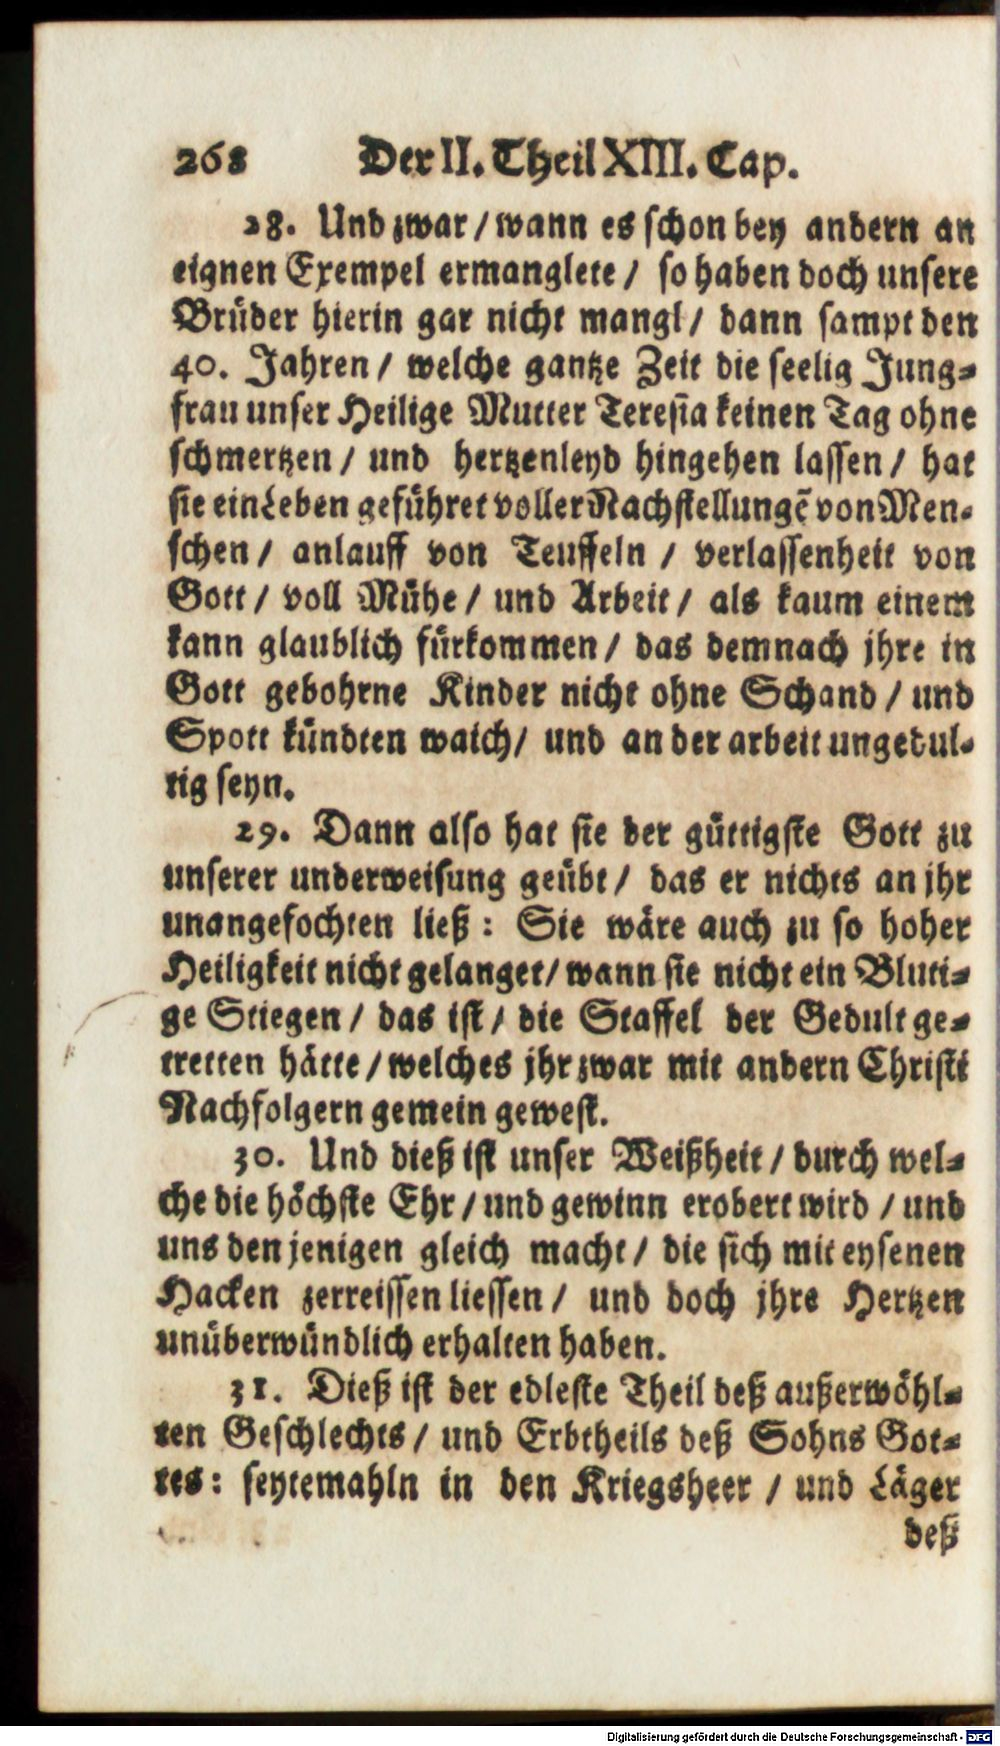 268 Der II. Theil XIII. Cap.
28. Und zwar / wann es schon bey andern an
eignen Exempel ermanglete / so haben doch unsere
Brüder hierin gar nicht mangl / dann sampt den
40. Jahren / welche gantze Zeit die seelig Jung-
frau unser Heilige Mutter Teresia keinen Tag ohne
schmertzen / und hertzenleyd hingehen lassen / hat
sie ein Leben geführet voller Nachstellungẽ von Men-
schen / anlauff von Teuffeln / verlassenheit von
Gott / voll Mühe / und Arbeit / als kaum einem
kann glaublich fürkommen / das demnach jhre in
Gott gebohrne Kinder nicht ohne Schand / und
Spott kündten waich / und an der arbeit ungedul-
tig seyn.
29. Dann also hat sie der güttigste Gott zu
unserer underweisung geübt / das er nichts an jhr
unangefochten ließ : Sie wäre auch zu so hoher
Heiligkeit nicht gelanget / wann sie nicht ein Bluti-
ge Stiegen / das ist / die Staffel der Gedult ge-
tretten hätte / welches jhr zwar mit andern Christi
Nachfolgern gemein gewest.
30. Und dieß ist unser Weißheit / durch wel-
che die höchste Ehr / und gewinn erobert wird / und
uns den jenigen gleich macht / die sich mit eysenen
Hacken zerreissen liessen / und doch jhre Hertzen
unüberwündlich erhalten haben.
31. Dieß ist der edleste Theil deß außerwöhl-
ten Geschlechts / und Erbtheils deß Sohns Got-
tes : seytemahln in den Kriegsheer / und Läger
deß
Digitalisierung gefördert durch die Deutsche Forschungsgemeinschaft - DFG